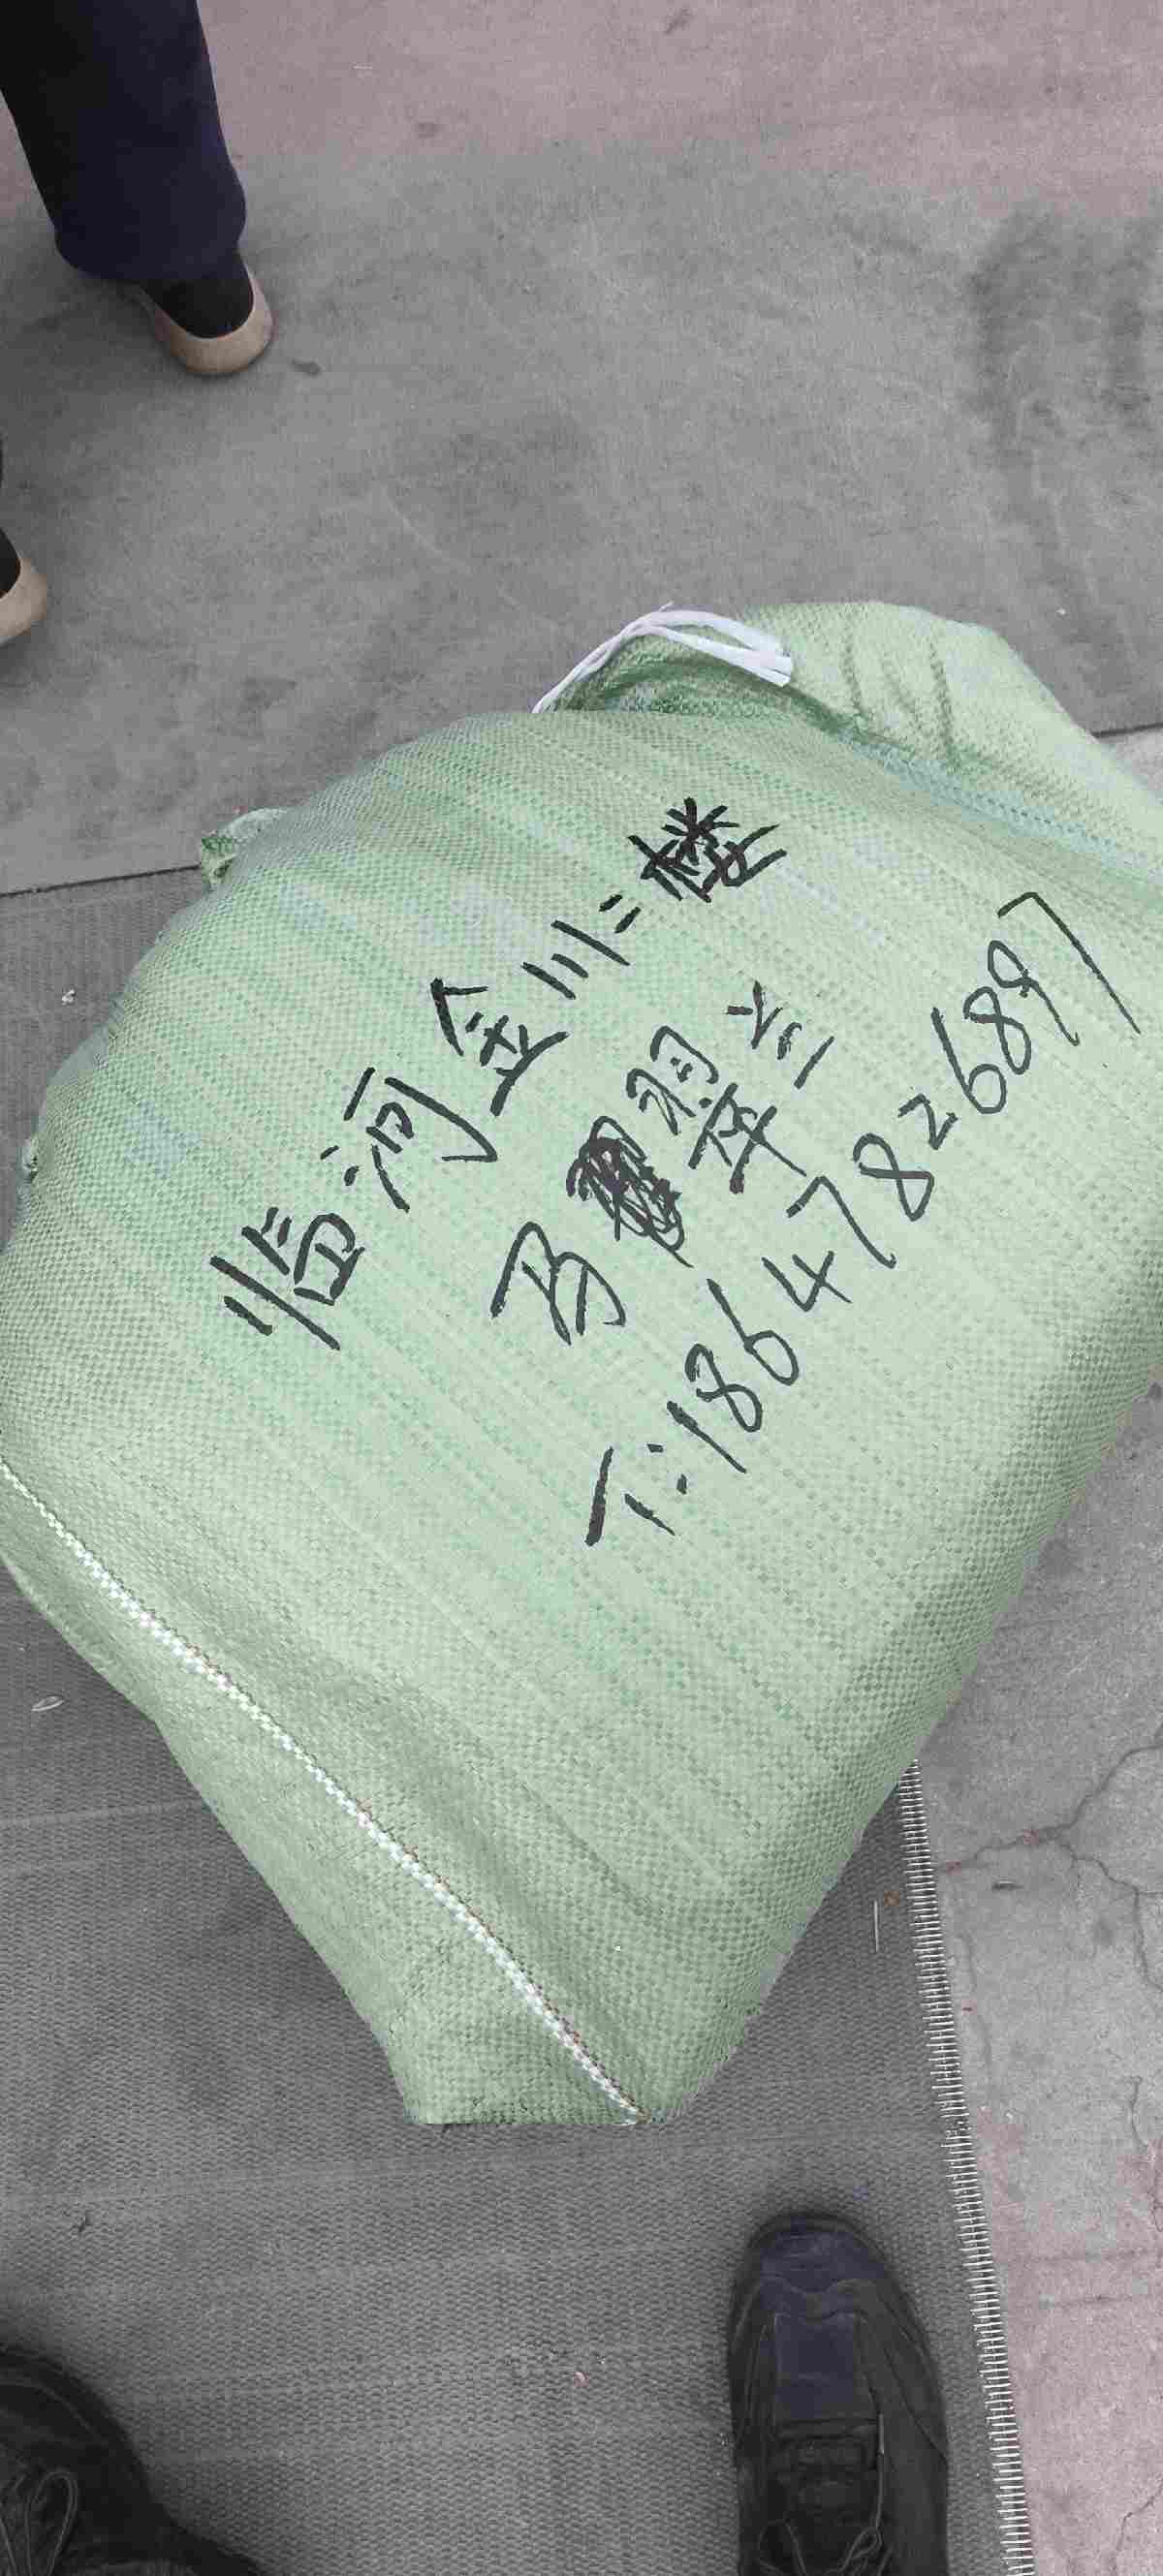 临河金川二楼
马翠兰
T:18647826897